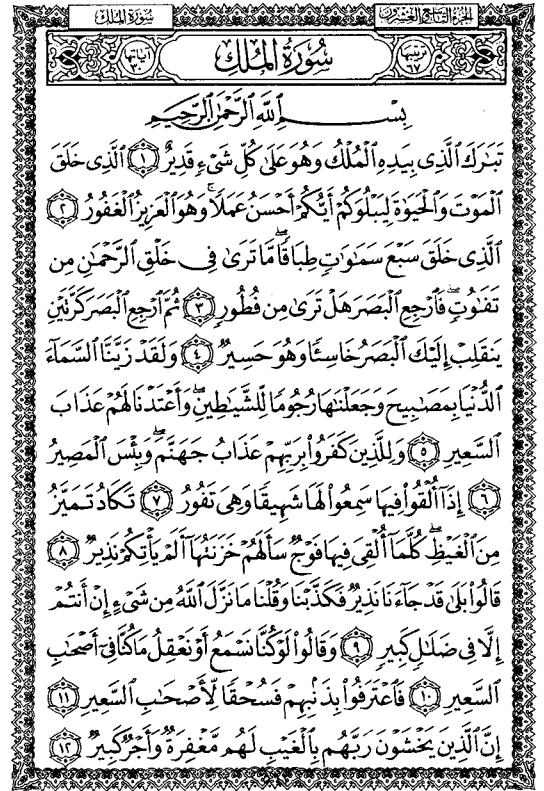 الجزء التاسع والعشرون سورة الملك
ترتيبها ٦٧ سورة الملك آياتها ٣٠
بِسْمِ ٱللَّهِ ٱلرَّحْمَٰنِ ٱلرَّحِيمِ
تَبَٰرَكَ ٱلَّذِى بِيَدِهِ ٱلْمُلْكُ وَهُوَ عَلَىٰ كُلِّ شَىْءٍ قَدِيرٌ ١ ٱلَّذِى خَلَقَ
ٱلْمَوْتَ وَٱلْحَيَوٰةَ لِيَبْلُوَكُمْ أَيُّكُمْ أَحْسَنُ عَمَلًا ۚ وَهُوَ ٱلْعَزِيزُ ٱلْغَفُورُ ٢
ٱلَّذِى خَلَقَ سَبْعَ سَمَٰوَٰتٍ طِبَاقًا ۖ مَّا تَرَىٰ فِى خَلْقِ ٱلرَّحْمَٰنِ مِن
تَفَٰوُتٍ ۖ فَٱرْجِعِ ٱلْبَصَرَ هَلْ تَرَىٰ مِن فُطُورٍ ٣ ثُمَّ ٱرْجِعِ ٱلْبَصَرَ كَرَّتَيْنِ
يَنقَلِبْ إِلَيْكَ ٱلْبَصَرُ خَاسِئًا وَهُوَ حَسِيرٌ ٤ وَلَقَدْ زَيَّنَّا ٱلسَّمَآءَ
ٱلدُّنْيَا بِمَصَٰبِيحَ وَجَعَلْنَٰهَا رُجُومًا لِّلشَّيَٰطِينِ ۖ وَأَعْتَدْنَا لَهُمْ عَذَابَ
ٱلسَّعِيرِ ٥ وَلِلَّذِينَ كَفَرُوا۟ بِرَبِّهِمْ عَذَابُ جَهَنَّمَ ۖ وَبِئْسَ ٱلْمَصِيرُ
٦ إِذَآ أُلْقُوا۟ فِيهَا سَمِعُوا۟ لَهَا شَهِيقًا وَهِىَ تَفُورُ ٧ تَكَادُ تَمَيَّزُ
مِنَ ٱلْغَيْظِ ۖ كُلَّمَآ أُلْقِىَ فِيهَا فَوْجٌ سَأَلَهُمْ خَزَنَتُهَآ أَلَمْ يَأْتِكُمْ نَذِيرٌ ٨
قَالُوا۟ بَلَىٰ قَدْ جَآءَنَا نَذِيرٌ فَكَذَّبْنَا وَقُلْنَا مَا نَزَّلَ ٱللَّهُ مِن شَىْءٍ إِنْ أَنتُمْ
إِلَّا فِى ضَلَٰلٍ كَبِيرٍ ٩ وَقَالُوا۟ لَوْ كُنَّا نَسْمَعُ أَوْ نَعْقِلُ مَا كُنَّا فِىٓ أَصْحَٰبِ
ٱلسَّعِيرِ ١٠ فَٱعْتَرَفُوا۟ بِذَنۢبِهِمْ فَسُحْقًا لِّأَصْحَٰبِ ٱلسَّعِيرِ ١١
إِنَّ ٱلَّذِينَ يَخْشَوْنَ رَبَّهُم بِٱلْغَيْبِ لَهُم مَّغْفِرَةٌ وَأَجْرٌ كَبِيرٌ ١٢